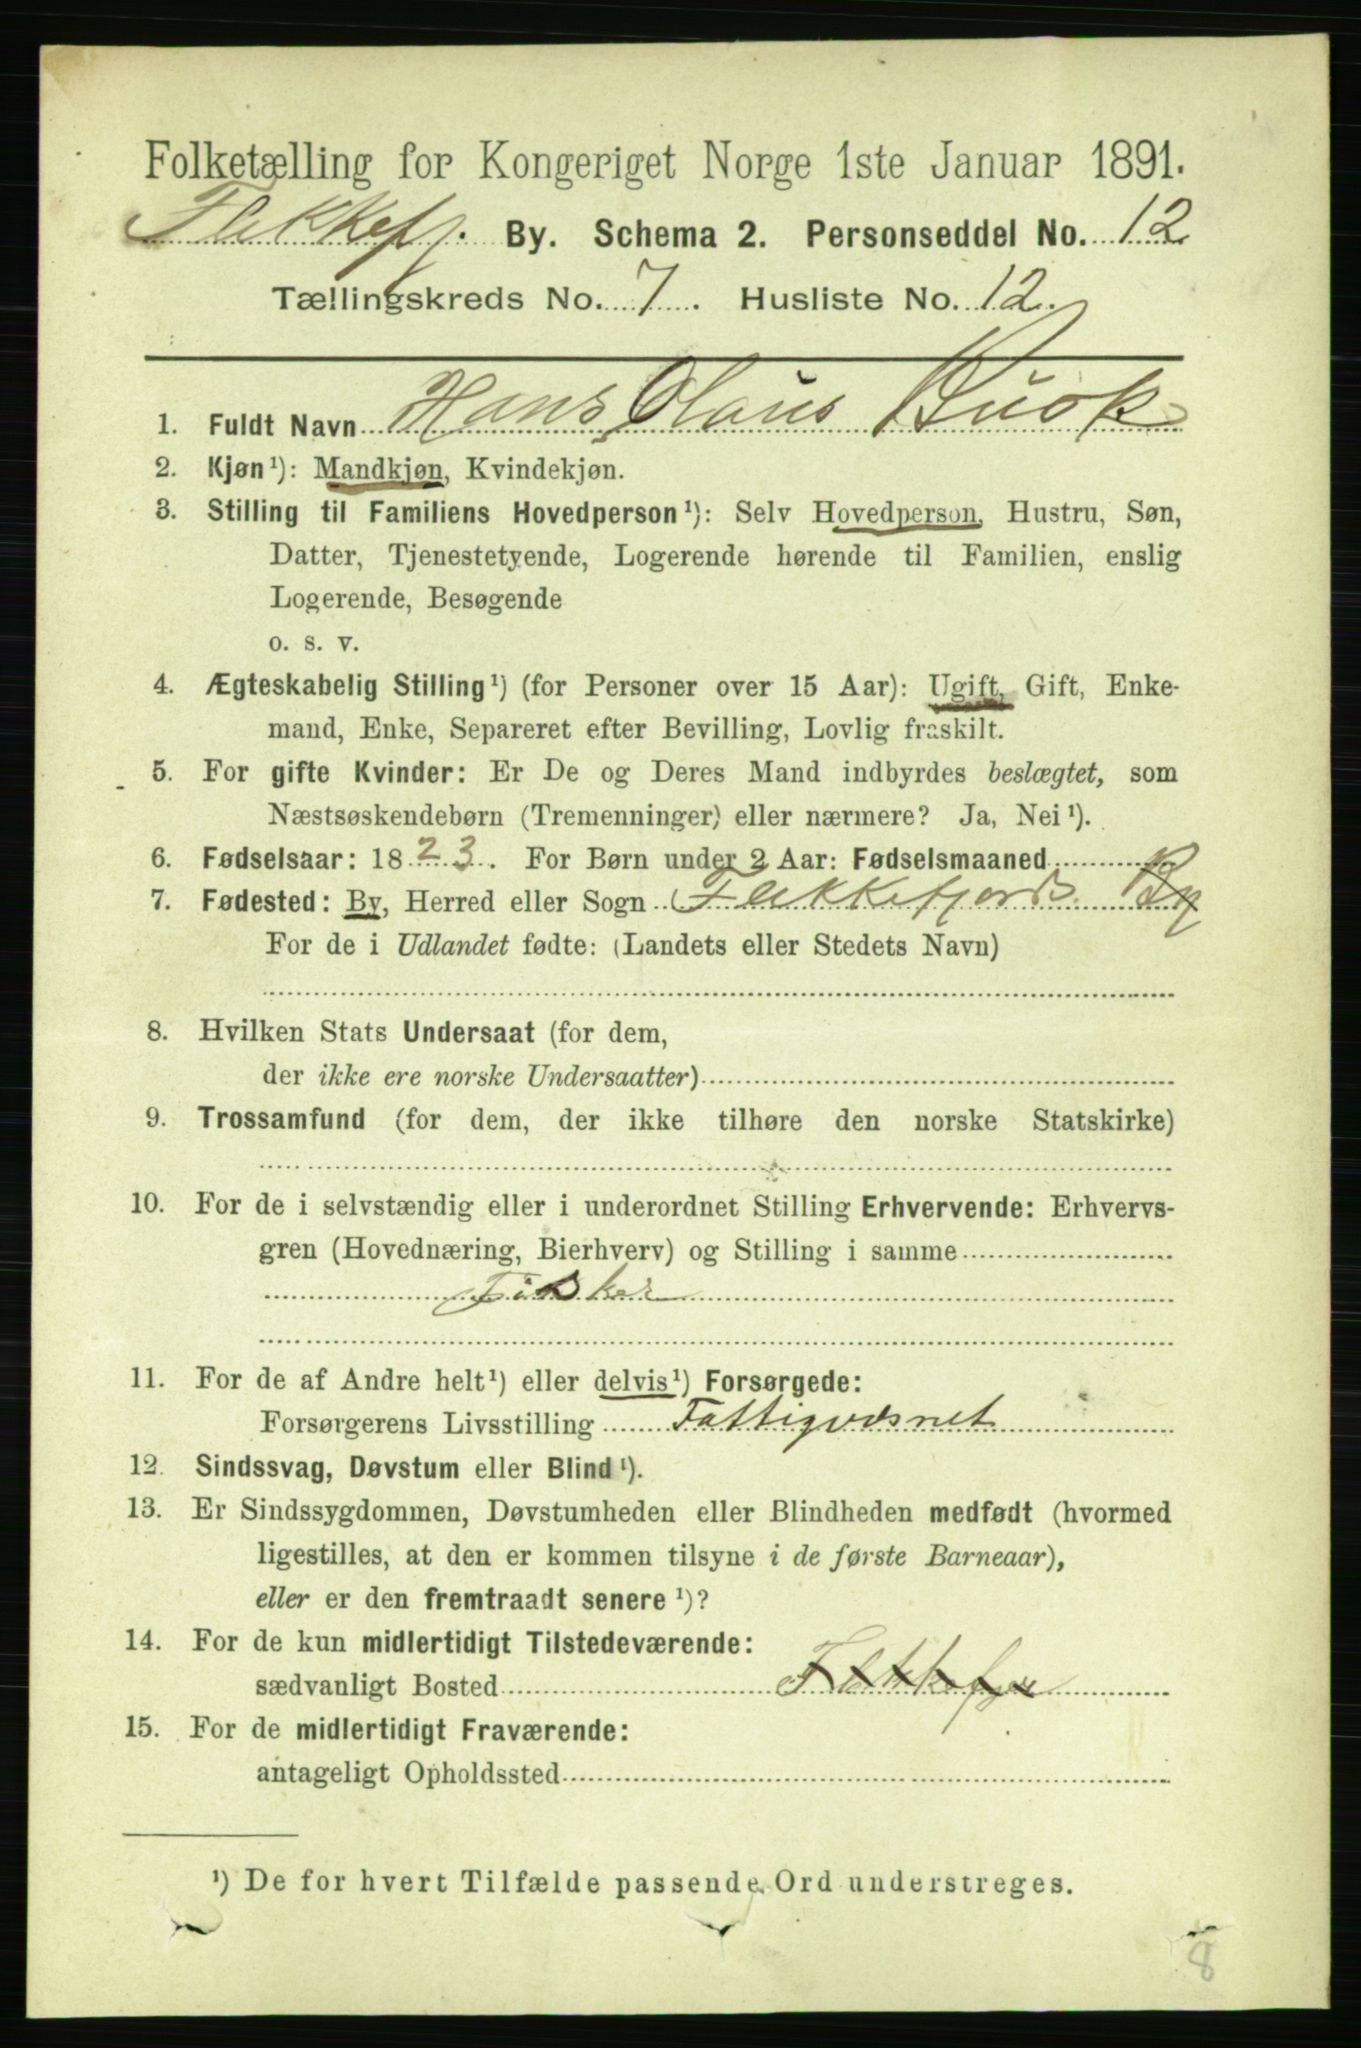 Folketælling for Kongeriget Norge 1ste Januar 1891.
Flekkefj. By. Schema 2. Personseddel No. 12
Tællingskreds No. 7. Husliste No. 12.
1. Fuldt Navn Hans Olaus
2. Kjøn¹): Mandkjøn, Kvindekjøn.
3. Stilling til Familiens Hovedperson¹): Selv Hovedperson, Hustru, Søn,
Datter, Tjenestetyende, Logerende hørende til Familien, enslig
Logerende, Besøgende
o. s. v.
4. Ægteskabelig Stilling¹) (for Personer over 15 Aar): Ugift, Gift, Enke-
mand, Enke, Separeret efter Bevilling, Lovlig fraskilt.
5. For gifte Kvinder: Er De og Deres Mand indbyrdes beslægtet, som
Næstsøskendebørn (Tremenninger) eller nærmere? Ja, Nei¹).
6. Fødselsaar: 1823. For Børn under 2 Aar: Fødselsmaaned
7. Fødested: By, Herred eller Sogn Flekkefjords By
For de i Udlandet fødte: (Landets eller Stedets Navn)
8. Hvilken Stats Undersaat (for dem,
der ikke ere norske Undersaatter)
9. Trossamfund (for dem, der ikke tilhøre den norske Statskirke)
10. For de i selvstændig eller i underordnet Stilling Erhvervende: Erhvervs-
gren (Hovednæring, Bierhverv) og Stilling i samme
Fisker
11. For de af Andre helt¹) eller delvis¹) Forsørgede:
Forsørgerens Livsstilling Fattigvæsnet
12. Sindssvag, Døvstum eller Blind¹).
13. Er Sindssygdommen, Døvstumheden eller Blindheden medfødt (hvormed
ligestilles, at den er kommen tilsyne i de første Barneaar),
eller er den fremtraadt senere¹)?
14. For de kun midlertidigt Tilstedeværende:
sædvanligt Bosted
15. For de midlertidigt Fraværende:
antageligt Opholdssted
¹) De for hvert Tilfælde passende Ord understreges.
8